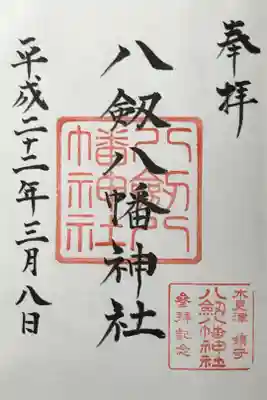 奉拝
八剱八幡神社
平成二十二年三月八日
八剱八幡神社
木更津 鎮守
八劔八幡神社
参拝記念